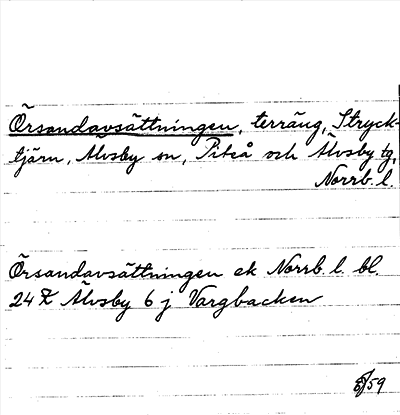 Örsandavsättningen, terräng, Stryck-
tjärn, Älvsby sn, Piteå och Älvsby tg,
Norrb. l.
Örsandavsättningen ek Norrb. l. bl.
24 K Älvsby 6 j Vargbacken
/59